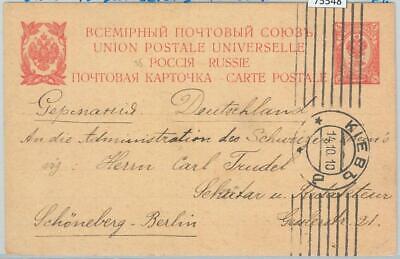 73548
ВСЕМІРНЫЙ ПОЧТОВЫЙ СОЮЗЪ
UNION POSTALE UNIVERSELLE
РОССІЯ - RUSSIE
ПОЧТОВАЯ КАРТОЧКА - CARTE POSTALE
Германія Deutschland
An die Administration des
Herrn Carl Trudel
Sekretär u.
Schöneberg-Berlin
21.
КІЕВЪ
10.10